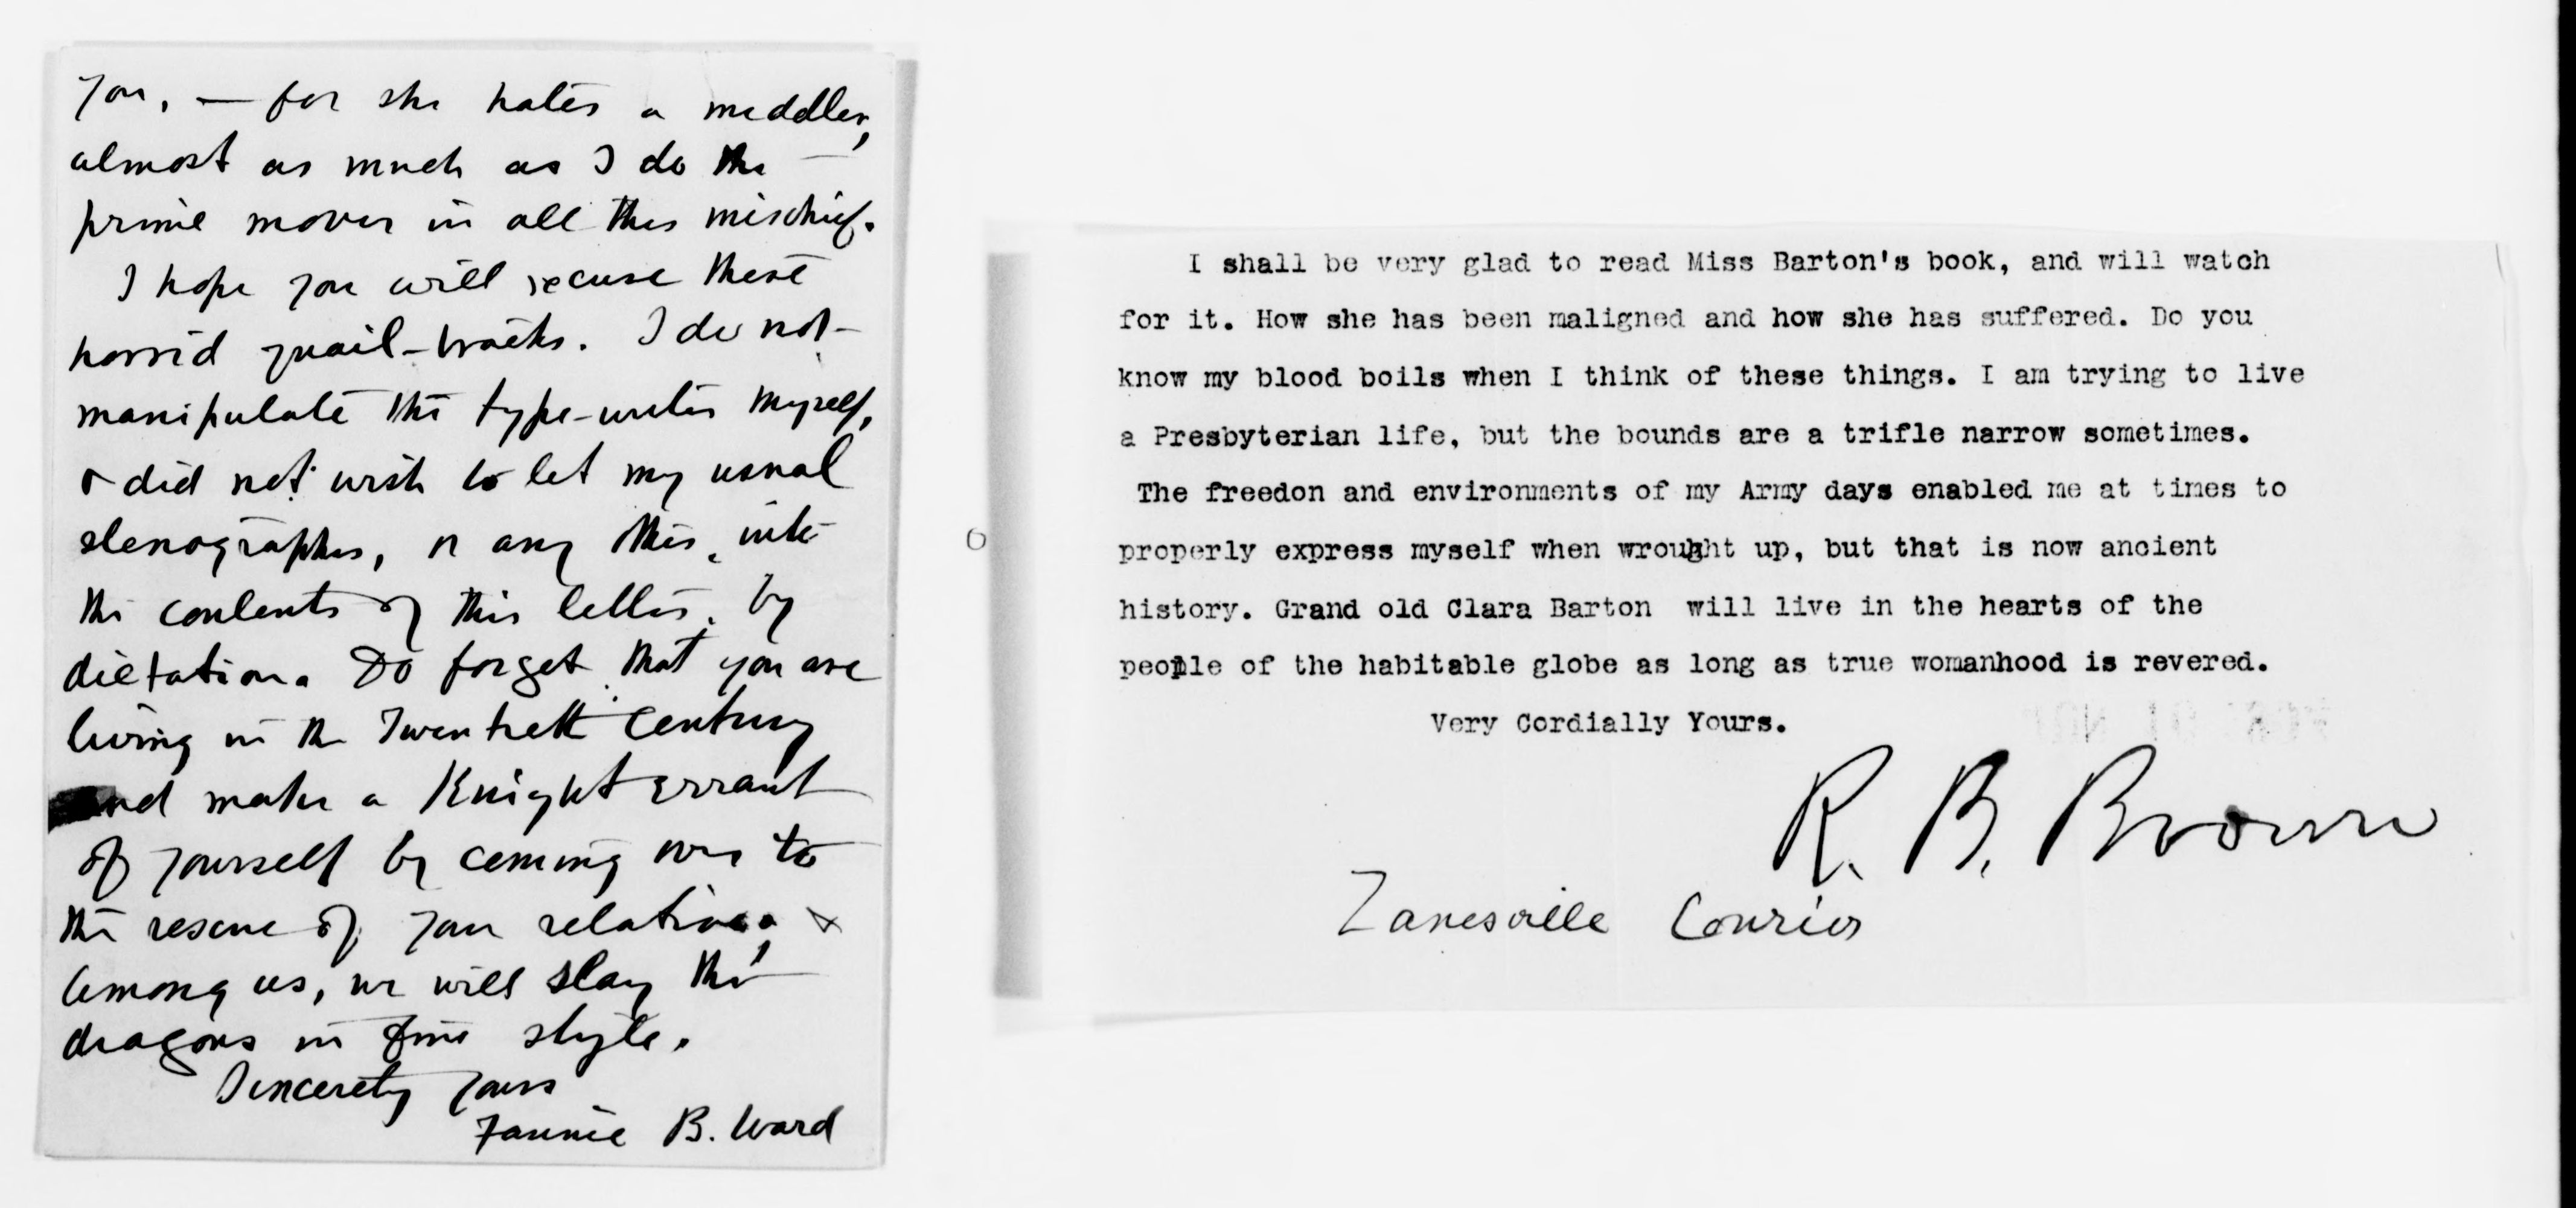 you, — for she hates a meddler,
almost as much as I do the
prime mover in all this mischief.
I hope you will excuse these
horrid quail-tracks. I do not
manipulate the type-writer myself,
& did not wish to let my usual
stenographer, or any other, into
the contents of this letter, by
dictation. Do forget that you are
living in the Twentieth Century
and make a Knight errant
of yourself by coming over to
the rescue of your relative, &
among us, we will slay the
dragons in fine style.
Sincerely yours
Fannie B. Ward
I shall be very glad to read Miss Barton's book, and will watch
for it. How she has been maligned and how she has suffered. Do you
know my blood boils when I think of these things. I am trying to live
a Presbyterian life, but the bounds are a trifle narrow sometimes.
The freedon and environments of my Army days enabled me at times to
properly express myself when wrought up, but that is now ancient
history. Grand old Clara Barton will live in the hearts of the
people of the habitable globe as long as true womanhood is revered.
Very Cordially Yours.
R. B. Brown
Zanesville Courier